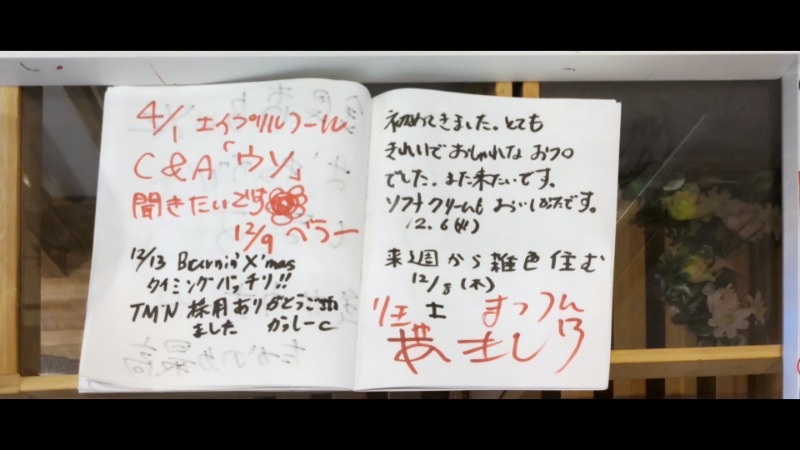 4/1 エイプリルフール
C&A「ウソ」
聞きたいです
12/9 ベラー
12/13 Burnin' X'mas
タイミングバッチリ!!
TMN 採用ありがとうござい
ました かっしーC
初めてきました。とても
きれいでおしゃれなおフロ
でした。また来たいです。
ソフトクリームもおいしかったです。
12.6(火)
来週から雑色住む
12/8(木)